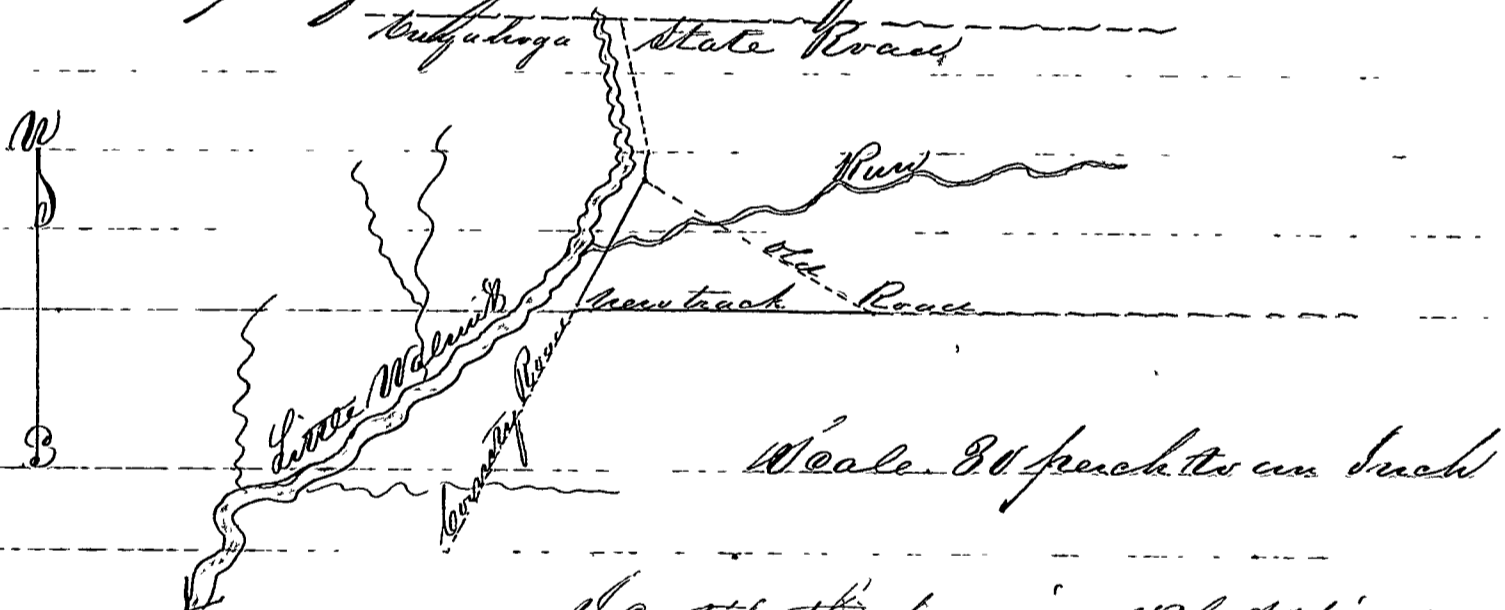 Cuyahoga State Road
N
Run
Old Road
New track
Little Walnut
County Road
S
Scale 80 perch to an Inch